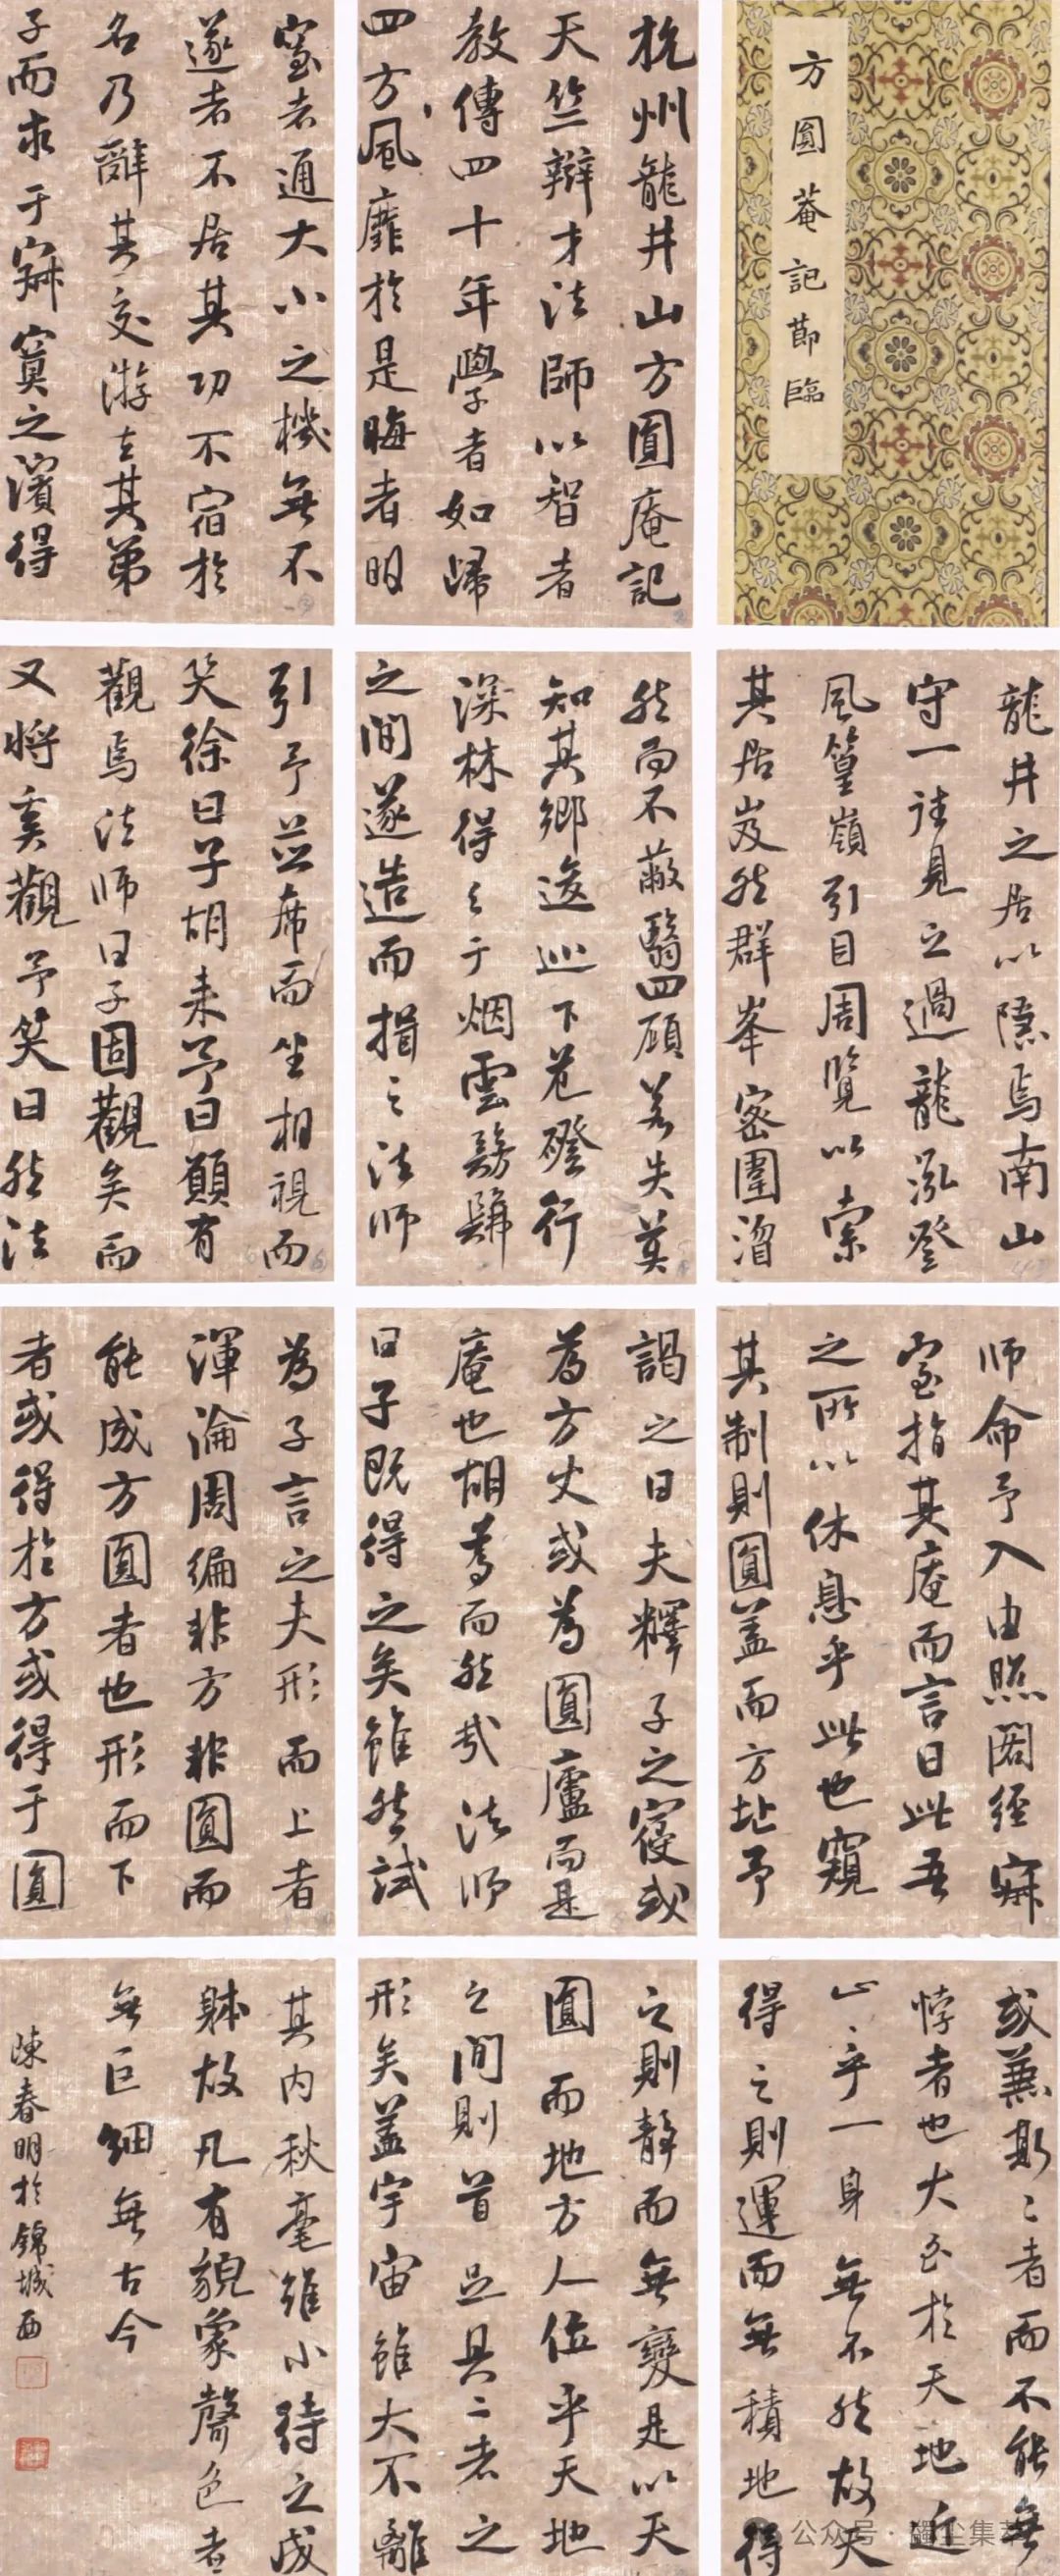 方圓菴記節臨
杭州龍井山方圓庵記
天竺辯才法師以智者
教傳四十年學者如歸
四方風靡於是晦者明
窒者通大小之機無不
遂者不居其功不宿於
名乃辭其交游去其弟
子而求于寂寞之濱得
龍井之居以隱焉南山
守一往見之過龍泓登
風篁嶺引目周覽以索
其居岌然群峯密圍溜
然而不蔽翳四顧若失莫
知其鄉逡巡下危磴行
深林得之于烟雲髣髴
之間遂造而揖之法師
引予並席而坐相視而
笑徐曰子胡来予曰願有
觀焉法師曰子固觀矣而
又將奚觀予笑曰然法
師命予入由照閣經寂
室指其庵而言曰此吾
之所以休息乎此也窺
其制則圓蓋而方址予
謁之曰夫釋子之寢或
為方丈或為圓廬而是
庵也胡為而然哉法師
曰子既得之矣雖然試
為子言之夫形而上者
渾淪周徧非方非圓而
能成方圓者也形而下
者或得於方或得于圓
或兼斯二者而不能無
悖者也大至於天地近
止乎一身無不然故天
得之則運而無積地得
之則靜而無變是以天
圓而地方人位乎天地
之間則首足具二者之
形矣蓋宇宙雖大不離
其内秋毫雖小待之成
體故凡有貌象聲色者
無巨細無古今
陳春明於錦城西
公众号